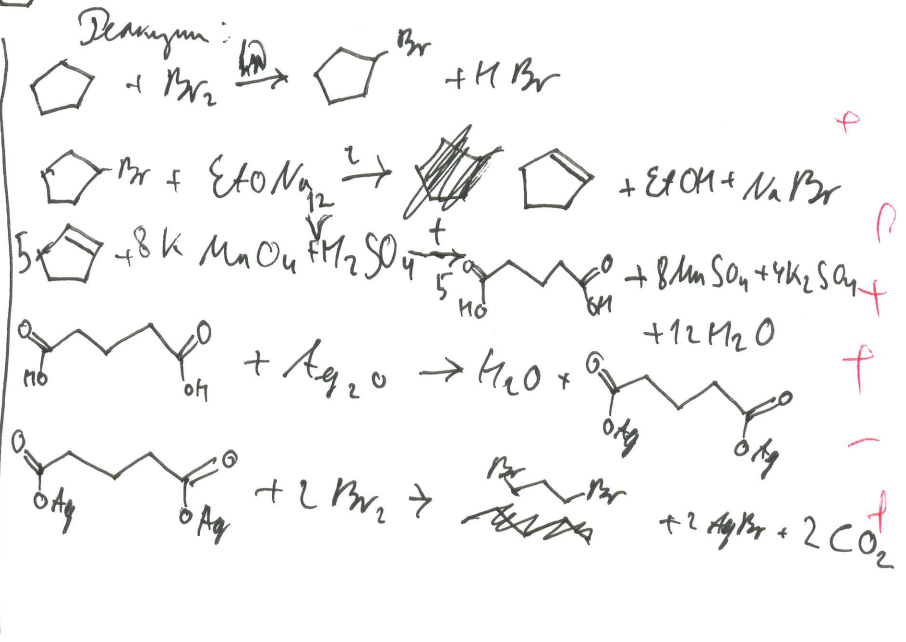 Реакции:
+ Br₂ hν → Br + HBr
Br + EtONa t → + EtOH + NaBr
5 + 8KMnO₄ + 12 H₂SO₄ t → 5 O HO O OH + 8MnSO₄ + 4K₂SO₄
+ 12H₂O
O HO O OH + Ag₂O → H₂O + O OAg O OAg
O OAg O OAg + 2Br₂ → Br Br + 2AgBr + 2CO₂